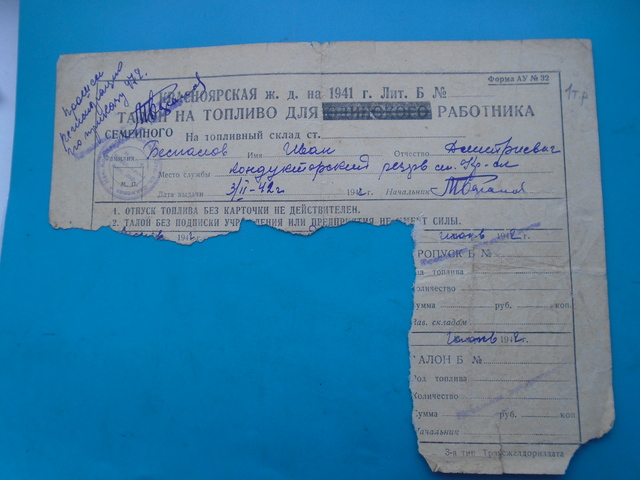 Форма АУ № 32
КРАСНОЯРСКАЯ ж. д. на 1941 г. Лит. Б №
1 т.р
ТАЛОН НА ТОПЛИВО ДЛЯ РАБОТНИКА
СЕМЕЙНОГО На топливный склад ст.
Фамилия Беспалов Имя Иван Отчество Дмитриевич
Место службы кондукторский резерв ст.
М. П.
Дата выдачи 3/II-42г 1942 г. Начальник
1. ОТПУСК ТОПЛИВА БЕЗ КАРТОЧКИ НЕ ДЕЙСТВИТЕЛЕН.
2. ТАЛОН БЕЗ ПОДПИСКИ УЧРЕЖДЕНИЯ ИЛИ ПРЕДПРИЯТИЯ НЕ ИМЕЕТ СИЛЫ.
194
июнь 1942 г.
РОПУСК Б №
од топлива
оличество
умма руб. коп
ав. складом
1942 г.
АЛОН Б №
од топлива
оличество
умма руб. коп
ачальник
3-я тип. Трансжелдориздата